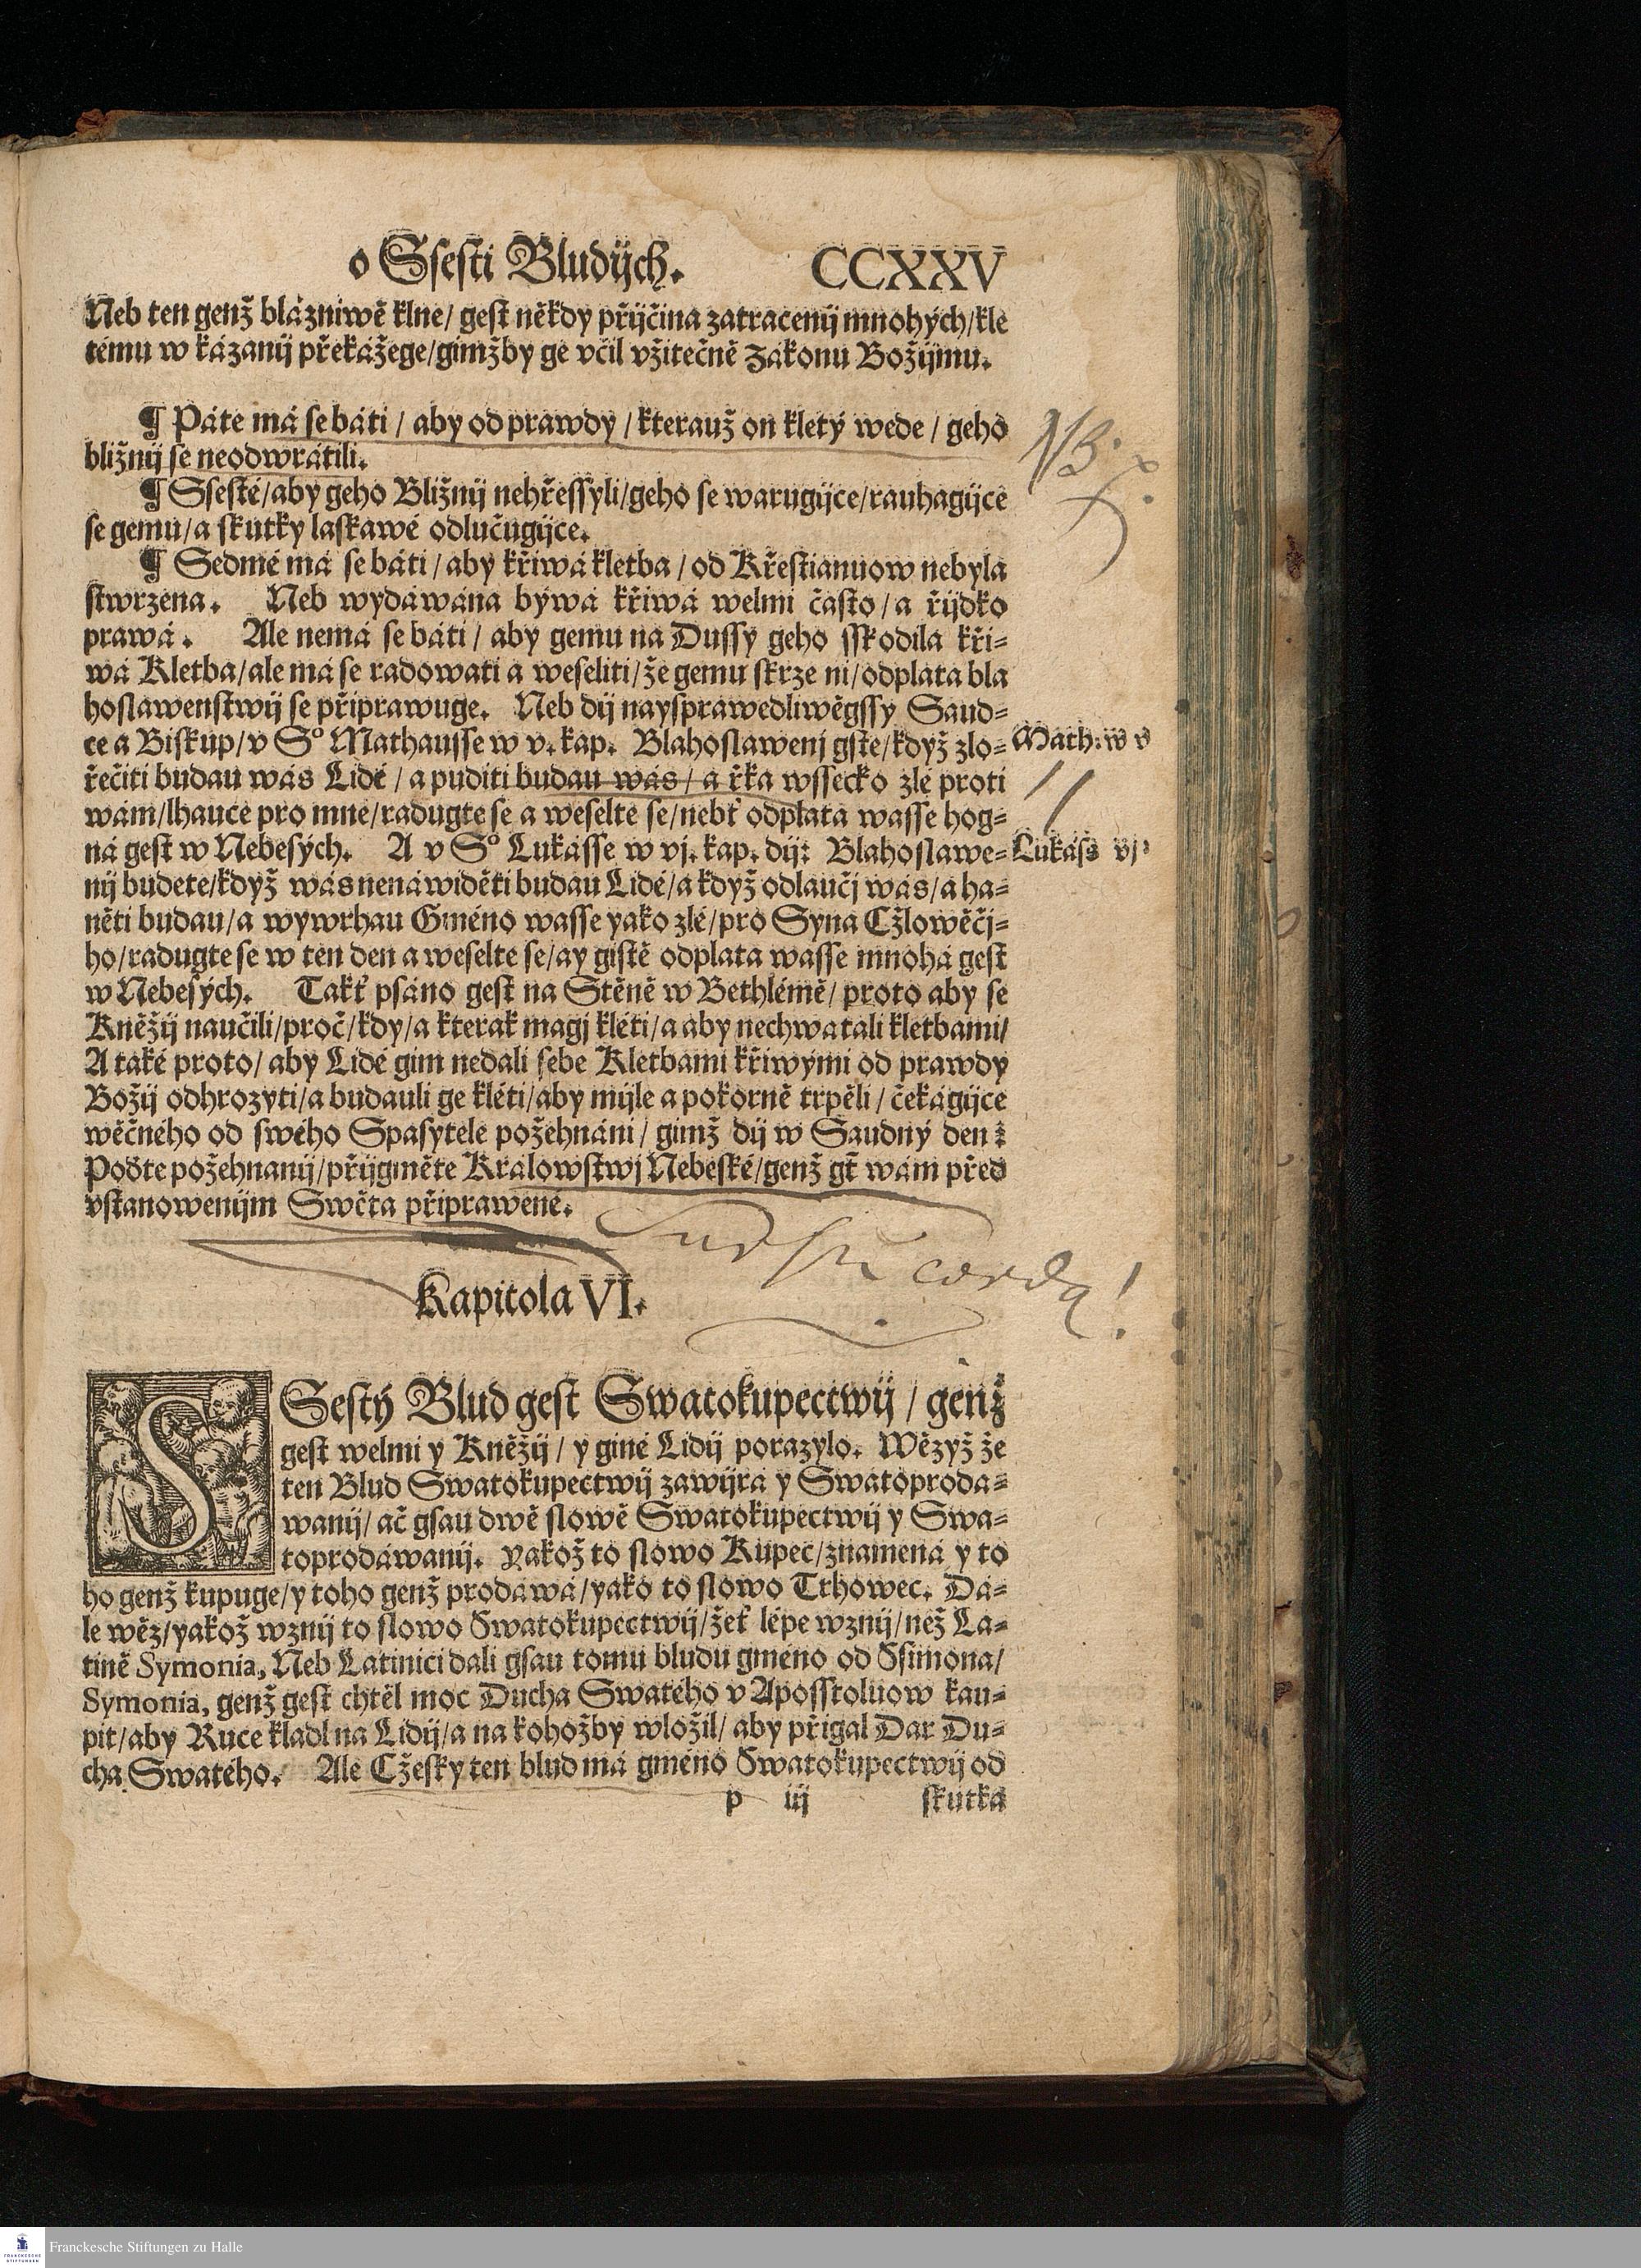 o Ssesti Bludijch. CCXXV
Neb ten genž blázniwě klne/ gest někdy přijčina zatracenij mnohých/kle
tému w kázanij překážege/gimžby ge včil vžitečně zákonu Božijmu.
¶ Páte má se báti / aby od prawdy / kterauž on kletý wede / geho
bližnij se neodwrátili.
NB.
¶ Ssesté/aby geho Bližnij nehřessyli/geho se warugijce/rauhagijce
se gemu/a skutky laskawé odlučugijce.
¶ Sedmé má se báti / aby křiwá kletba / od Křestianuow nebyla
stwrzena. Neb wydáwána býwá křiwá welmi často/a řijdko
prawá. Ale nemá se báti / aby gemu na Dussy geho sskodila kři-
wá Kletba/ale má se radowati a weseliti/že gemu skrze ni/odplata bla
hoslawenstwij se připrawuge. Neb dij nayspráwedliwěgssy Saud-
ce a Biskup/v So Mathausse w v. kap. Blahoslawenj gste/když zlo-
Math: w v
řečiti budau wás Lidé / a puditi budau wás / a řka wssecko zlé proti
wám/lhauce pro mne/radugte se a weselte se/nebť odplata wasse hog-
ná gest w Nebesých. A v So Lukásse w vj. kap. dij: Blahoslawe-
Lukáss vj.
nij budete/když wás nenáwiděti budau Lidé/a když odlaučj wás/a ha-
něti budau/a wywrhau Gméno wasse yako zlé/pro Syna Cžlowěčj-
ho/radugte se w ten den a weselte se/ay gistě odplata wasse mnohá gest
w Nebesých. Takť psáno gest na Stěně w Bethlémě/ proto aby se
Kněžij naučili/proč/kdy/a kterak magj kléti/a aby nechwatali kletbami/
A také proto/ aby Lidé gim nedali sebe Kletbami křiwými od prawdy
Božij odhrozyti/a budauli ge kléti/aby mijle a pokorně trpěli / čekágijce
wěčného od swého Spasytele požehnáni / gimž dij w Saudný den:
Poďte požehnanij/přijgměte Králowstwj Nebeské/genž gť wám před
vstanowenijm Swěta připrawené.
corda!
Kapitola VI.
SSestý Blud gest Swatokupectwij / genž
gest welmi y Kněžij / y giné Lidij porazylo. Wězyž že
ten Blud Swatokupectwij zawijrá y Swatoproda-
wanij/ ač gsau dwě slowě Swatokupectwij y Swa-
toprodáwanij. Yakož to slowo Kupec/znamená y to
ho genž kupuge/y toho genž prodáwá/yako to slowo Trhowec. Dá-
le wěz/yakož wznij to slowo Swatokupectwij/žeť lépe wznij/než La-
tině Symonia, Neb Latinici dali gsau tomu bludu gméno od Ssimona/
Symonia, genž gest chtěl moc Ducha Swatého v Aposstoluow kau-
pit/aby Ruce kladl na Lidij/a na kohožby wložil/ aby přigal Dar Du-
cha Swatého. Ale Cžesky ten blud má gméno Swatokupectwij od
p iij skutka
FRANCKESCHE
STIFTUNGEN
Franckesche Stiftungen zu Halle